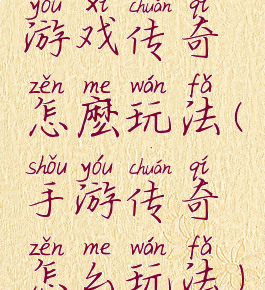 yóu xì chuán qí
游戏传奇
zěn me wán fǎ
怎麽玩法(
shǒu yóu chuán qí
手游传奇
zěn me wán fǎ
怎么玩法)